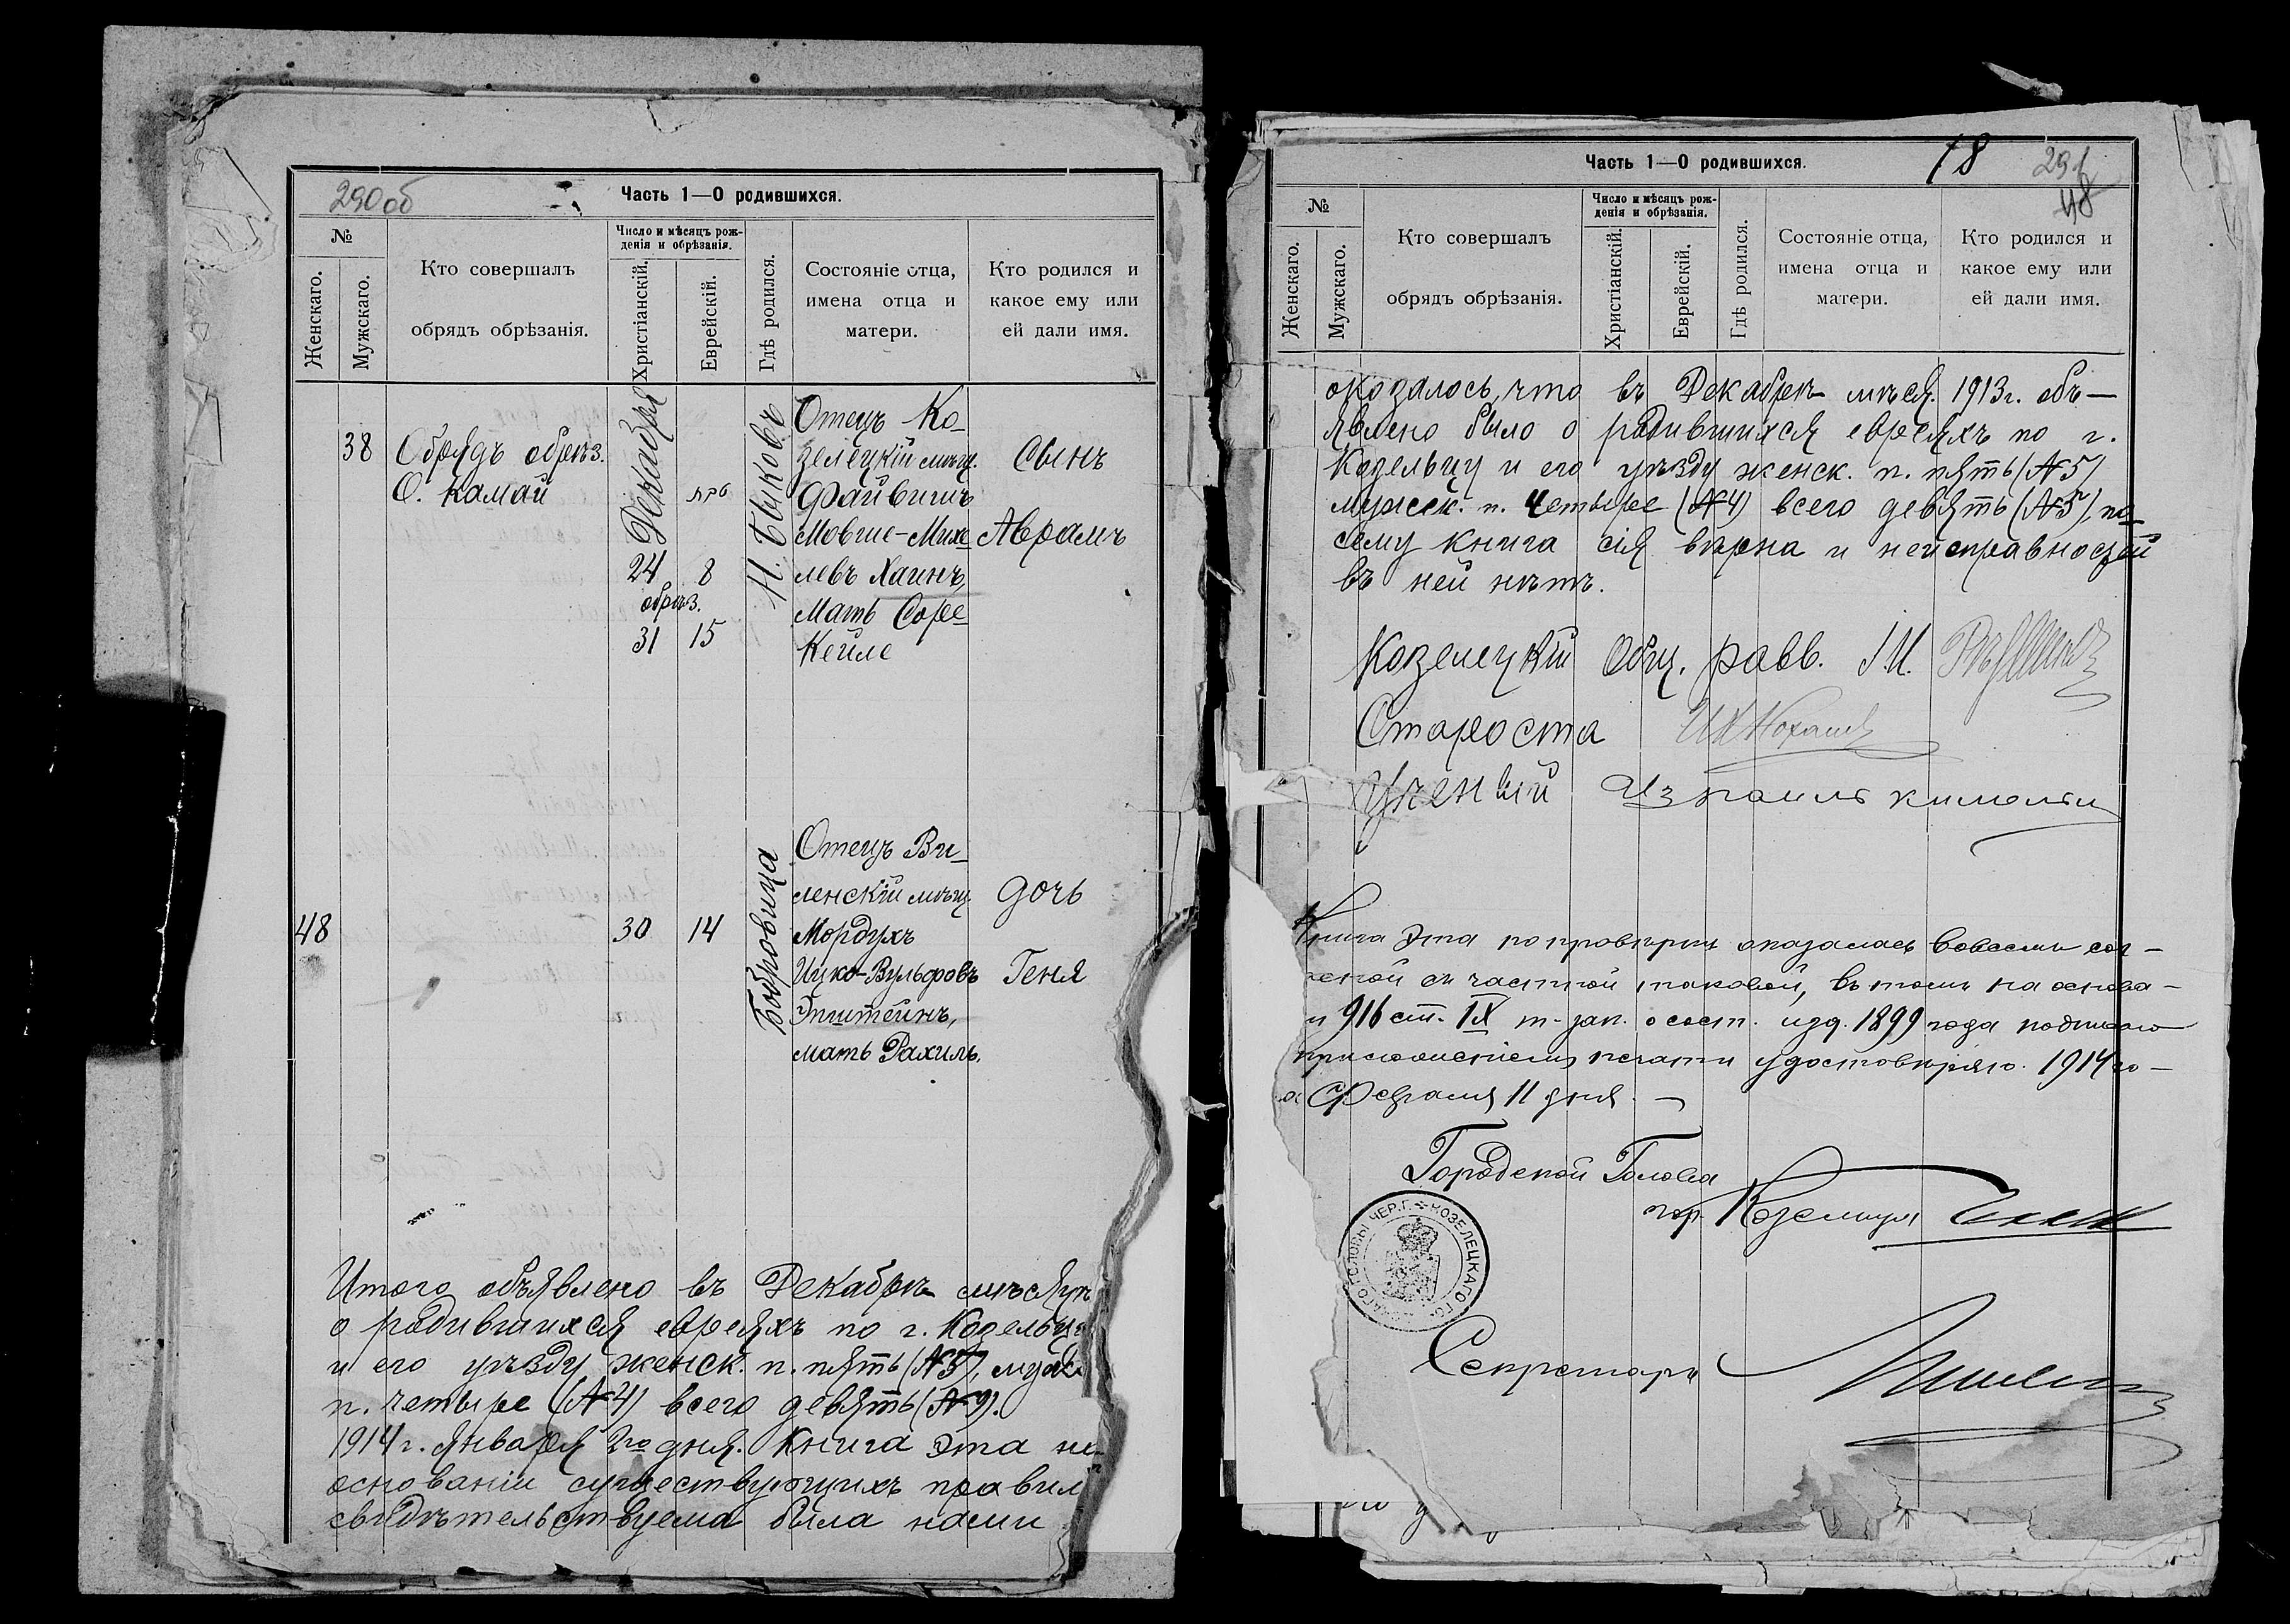 290об
Часть 1—О родившихся.
№
Женскаго.
Мужскаго.
Кто совершалъ
обрядъ обрѣзанія.
Число и мѣсяцъ рож-
денія и обрѣзанія.
Христіанскій.
Еврейскій.
Гдѣ родился.
Состояніе отца,
имена отца и
матери.
Кто родился и
какое ему или
ей дали имя.
38
Обрядъ обрѣз.
О. Камай
Декабря
24
8
обрѣз.
31
15
Н. Быковъ
Отецъ Ко-
зелецкій мѣщ.
Файвишъ
Мовше-Михе
левъ Хаинъ,
Мать Соре-
Кейле
Сынъ
Аврамъ
48
30
14
Бобровица
Отецъ Ви-
ленскій мѣщ.
Мордухъ
Ицко-Вульфовъ
Эпштейнъ,
мать Рахиль.
дочь
Геня
Итого объявлено въ Декабрѣ мѣсяцѣ
о родившихся евреяхъ по г. Козельцу
и его уѣзду женск. п. пять (№5), муж.
п. четыре (№4) всего девять (№9).
1914 г. Января 2го дня. Книга эта на
основаніи существующихъ правил
свидѣтельствуема была нами
Часть 1—О родившихся.
18
291
48
№
Женскаго.
Мужскаго.
Кто совершалъ
обрядъ обрѣзанія.
Число и мѣсяцъ рож-
денія и обрѣзанія.
Христіанскій.
Еврейскій.
Гдѣ родился.
Состояніе отца,
имена отца и
матери.
Кто родился и
какое ему или
ей дали имя.
оказалось, что въ Декабрѣ мѣся. 1913 г. объ—
явлено было о родившихся евреяхъ по г.
Козельцу и его уѣзду женск. п. пять (№5)
мужск. п. четыре (№4) всего девять (№5), по
сему книга сія вѣрна и неисправностей
въ ней нѣтъ.
Козелецкій Общ. равв. І.И.
Староста
Ученый Израиль
Книга эта по провѣркѣ оказалась вовсемъ сог-
ласной съ частной таковой, въ томъ на основа-
и 916 ст. IX т. зак. о сост. изд. 1899 года подписью
приложеніемъ печати удостовѣряю. 1914 го-
а Февраля 11 дня.
Городской Голова
гор. Козельца
КОЗЕЛЕЦКАГО ГО
ГОЛОВЫ ЧЕР.Г.
Секретарь